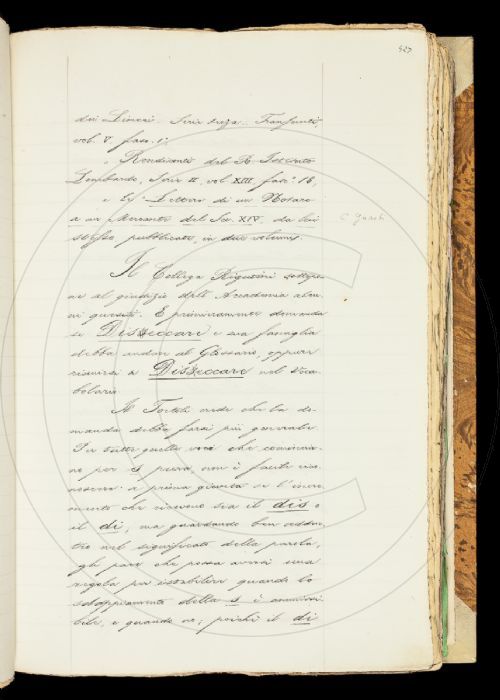 527
dei Lincei. Serie terza. Transunti,
vol. V fasc. 1º
" Rendiconti del R. Istituto
Lombardo, Serie II, vol. XIII, fasc.º 18,
e Ey. Lettere di un Notaro
a un Mercante del Sec. XIV, da lui
stesso pubblicate, in due volumi.
C. Guasti
Il Collega Rigutini sottopo-
ne al giudizio dell'Accademia alcu-
ni quesiti. E primieramente domanda
se Disseccare e sua famiglia
debba andare al Glossario, oppure
riunirsi a Diseccare nel Voca-
bolario.
Il Tortoli crede che la do-
manda debba farsi più generale.
Per tutte quelle voci che comincia-
no per s pura, non è facile rico-
noscere a prima giunta se l'incre-
mento che ricevono sia il dis o
il di; ma guardando ben adden-
tro nel significato della parola,
gli pare che possa aversi una
regola per istabilire quando lo
sdoppiamento della s è ammissi-
bile, e quando no; poichè il di